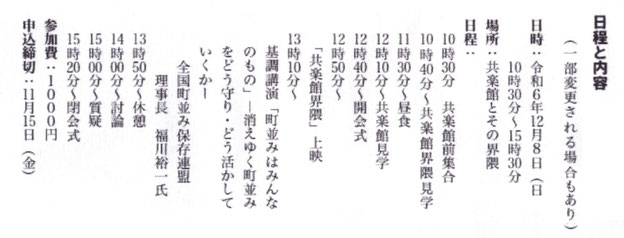 日程と内容
（一部変更される場合もあり）
日時：令和６年12月８日（日
10時30分～15時30分
場所：共楽館とその界隈
日程：
10時30分　共楽館前集合
10時40分～共楽館界隈見学
11時30分～昼食
12時10分～共楽館見学
12時40分～開会式
12時50分～
「共楽館界隈」上映
13時10分～
基調講演「町並みはみんな
のもの」―消えゆく町並み
をどう守り・どう活かして
いくか―
全国町並み保存連盟
理事長　福川裕一氏
13時50分～休憩
14時00分～討論
15時00分～質疑
15時20分～閉会式
参加費：１０００円
申込締切：11月15日（金）